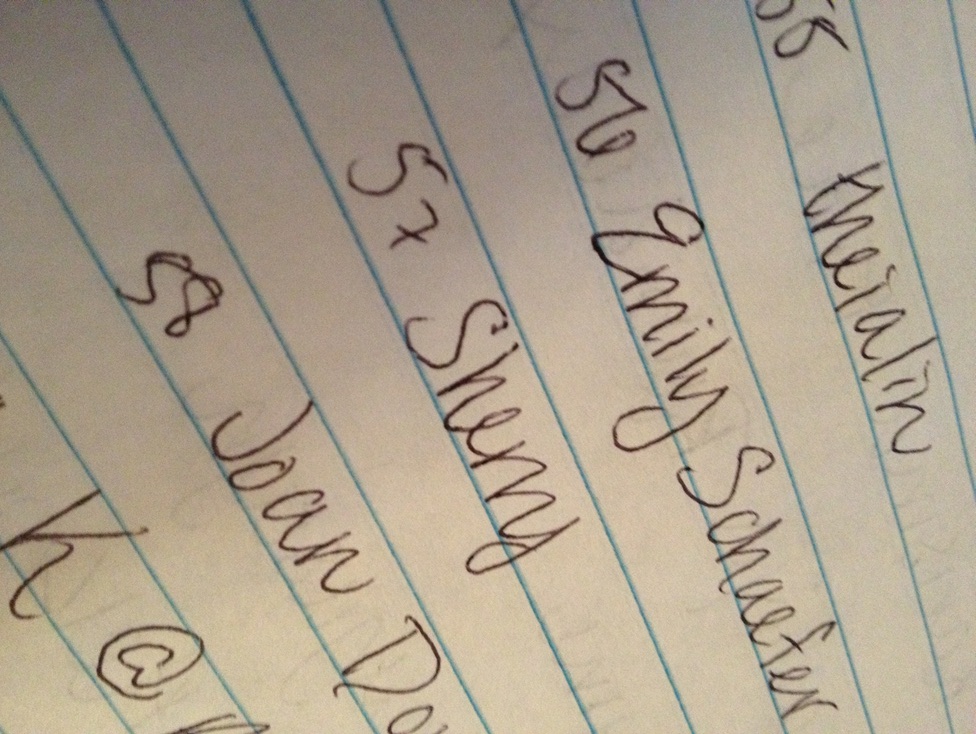 meialin
56 Emily Schaefer
57 Sherry
58 Joan Do
K @